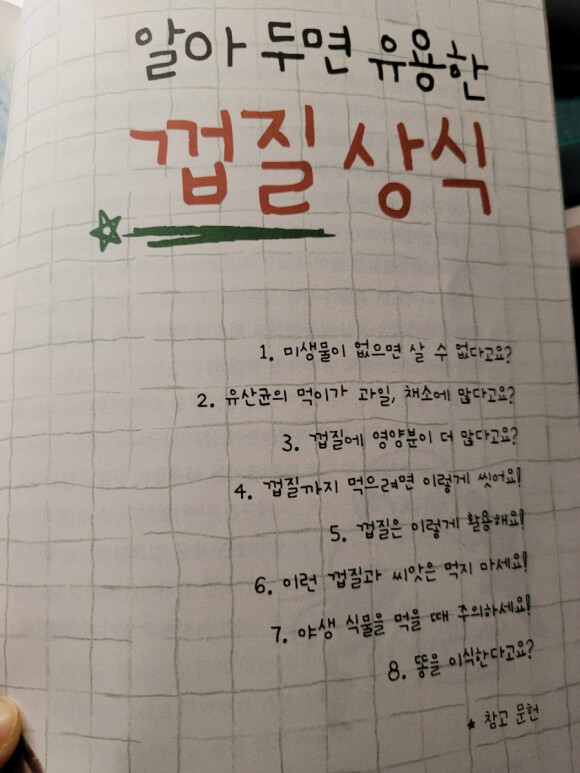 알아 두면 유용한
껍질 상식
1. 미생물이 없으면 살 수 없다고요?
2. 유산균의 먹이가 과일, 채소에 많다고요?
3. 껍질에 영양분이 더 많다고요?
4. 껍질까지 먹으려면 이렇게 씻어요!
5. 껍질은 이렇게 활용해요!
6. 이런 껍질과 씨앗은 먹지 마세요!
7. 야생 식물을 먹을 때 주의하세요!
8. 똥을 이식한다고요?
★ 참고 문헌